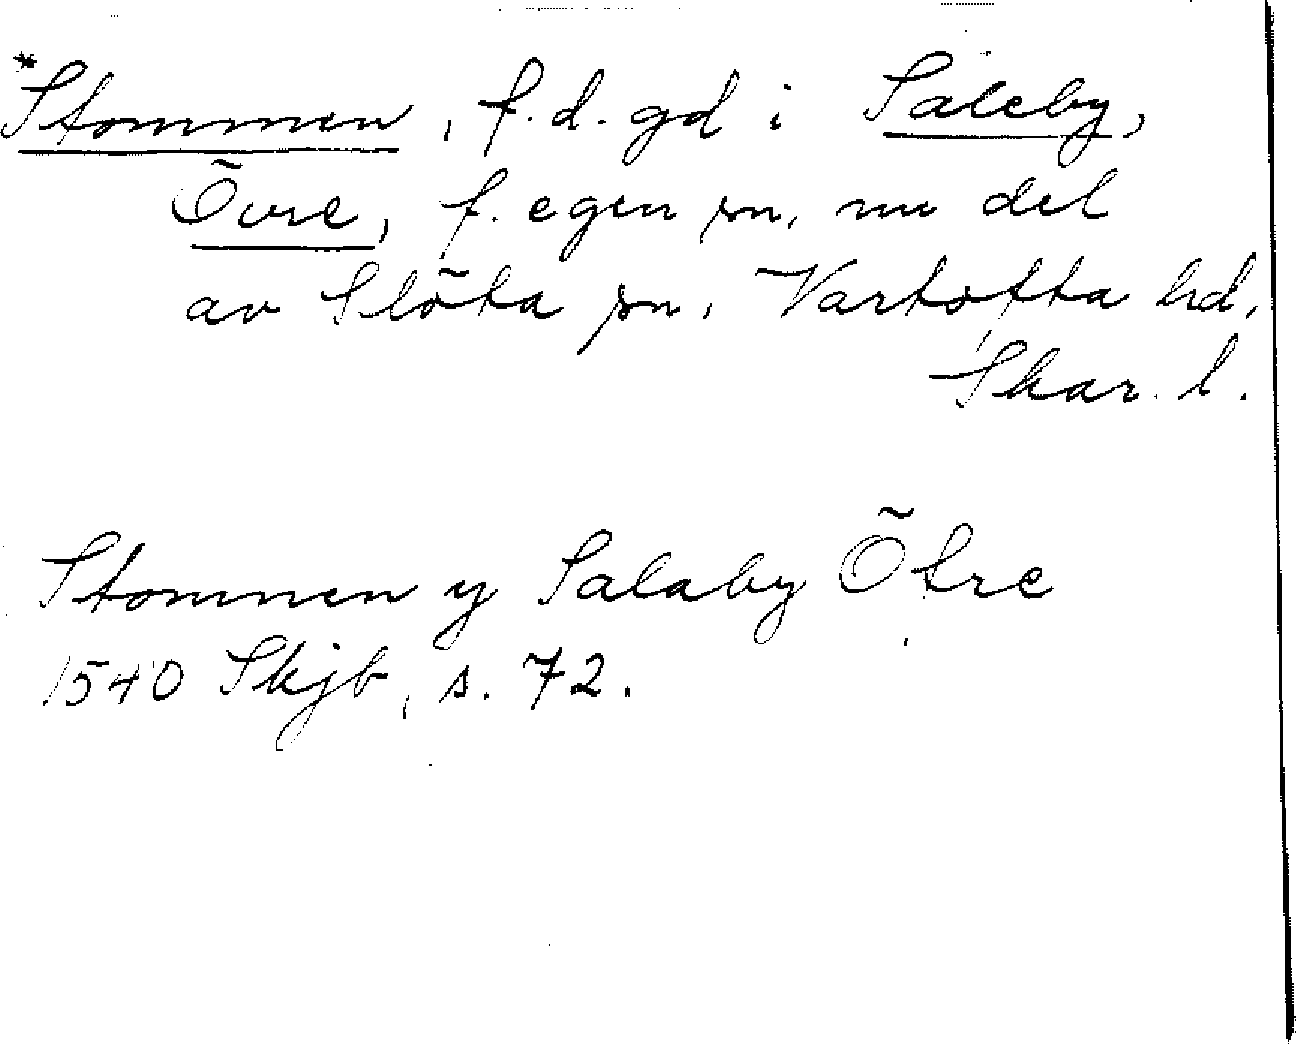 *Stommen, f.d. gd i Saleby,
Övre, f. egen sn, nu del
av Slöta sn, Vartofta hd,
Skar. l.
Stommen y Salaby Ötre
1540 Skjb, s. 72.